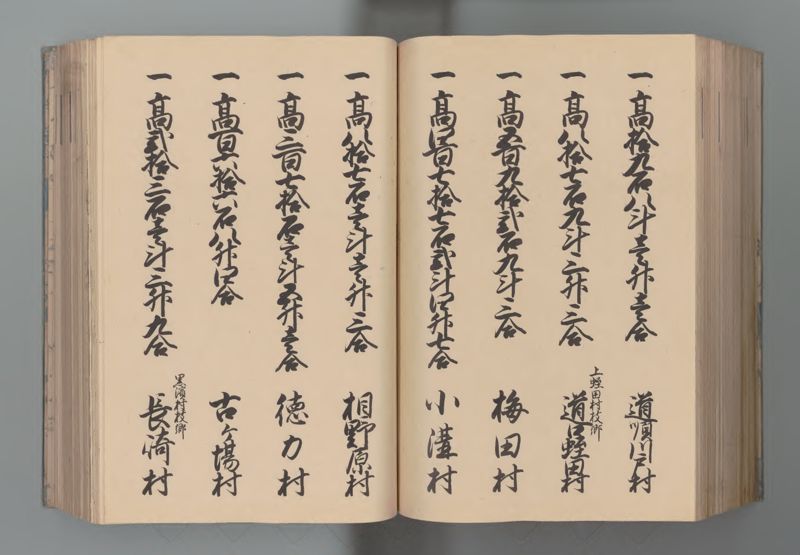 一高拾九石八斗壱升壱合 道順川戸村
一高八拾七石九斗三升三合 上蛭田村枝郷 道口蛭田村
一高五百九拾弐石九斗三合 梅田村
一高四百七拾七石弐斗四升七合 小溝村
一高八拾七石壱斗壱升三合 相野原村
一高三百七拾石壱斗五升壱合 徳力村
一高百六拾六石八升四合 古ヶ場村
一高弐拾三石壱斗三升九合 黒濱村枝郷 長崎村